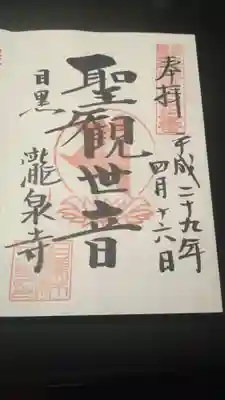 奉拝
平成二十九年
四月十六日
聖観世音
目黒
瀧泉寺